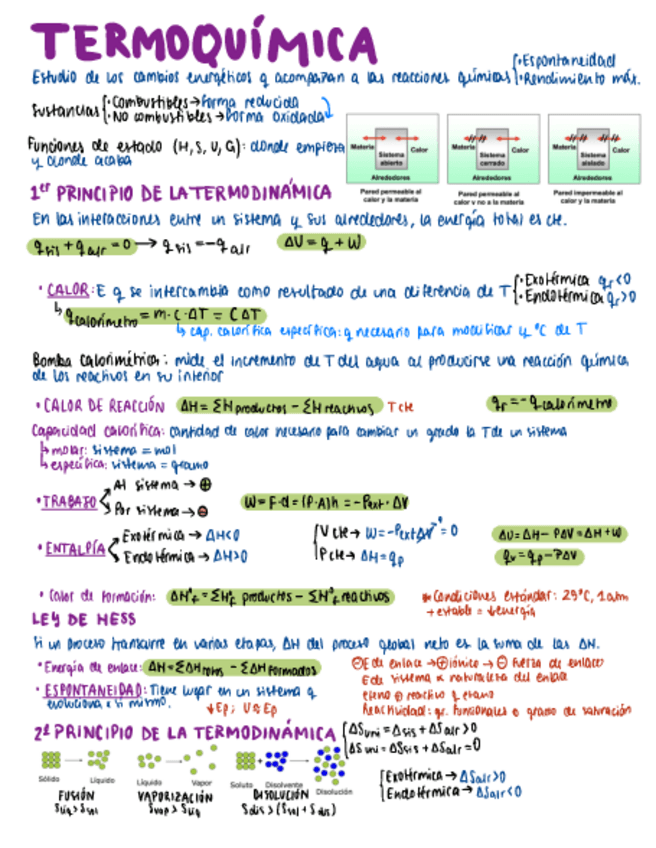 TERMOQUÍMICA
Estudio de los cambios energéticos q acompañan a las reacciones químicas { · Espontaneidad
· Rendimiento máx.
Sustancias { · Combustibles → forma reducida
· No combustibles → forma oxidada
Funciones de estado (H, S, U, G): donde empieza
y donde acaba
Materia Sistema abierto Calor
Alrededores
Pared permeable al
calor y la materia
Materia Sistema cerrado Calor
Alrededores
Pared permeable al
calor y no a la materia
Materia Sistema aislado Calor
Alrededores
Pared impermeable al
calor y la materia
1er PRINCIPIO DE LA TERMODINÁMICA
En las interacciones entre un sistema y sus alrededores, la energía total es cte.
q sis + q alr = 0 → q sis = -q alr ΔU = q + W
· CALOR: E q se intercambia como resultado de una diferencia de T { · Exotérmica qr<0
· Endotérmica qr>0
↳ q calorímetro = m · C · ΔT = C ΔT
↳ cap. calorífica específica: q necesario para modificar 1 °C de T
Bomba calorimétrica: mide el incremento de T del agua al producirse una reacción química
de los reactivos en su interior
· CALOR DE REACCIÓN ΔH = ΣH productos - ΣH reactivos T cte qr = -q calorímetro
Capacidad calorífica: cantidad de calor necesario para cambiar un grado la T de un sistema
↳ molar: sistema = mol
↳ específica: sistema = gramo
· TRABAJO Al sistema → ⊕
Por sistema → ⊖
W = F · d = (P · A)h = -Pext · ΔV
· ENTALPÍA Exotérmica → ΔH<0
Endotérmica → ΔH>0
{ V cte → W = -Pext ΔV = 0
P cte → ΔH = qp
ΔU = ΔH - PΔV = ΔH + W
qv = qp - PΔV
· Calor de formación: ΔH°f = ΣH°f productos - ΣH°f reactivos
* Condiciones estándar: 25°C, 1 atm
+ estable = ↓ energía
LEY DE HESS
Si un proceso transcurre en varias etapas, ΔH del proceso global neto es la suma de las ΔH.
· Energía de enlace: ΔH = ΣΔH rotos - ΣΔH formados
⊖ E de enlace → ⊕ iónico → ⊖ fuerza de enlace
E de sistema ∝ naturaleza del enlace
eteno ⊕ reactivo q etano
Reactividad: gr. funcionales o grado de saturación
· ESPONTANEIDAD: Tiene lugar en un sistema q
evoluciona x si mismo.
2º PRINCIPIO DE LA TERMODINÁMICA { ΔS uni = Δsis + ΔS alr > 0
ΔS uni = ΔSsis + ΔS alr = 0
Sólido Líquido
FUSIÓN
Sliq > Ssol
Líquido Vapor
VAPORIZACIÓN
Svap > Sliq
Soluto Disolvente Disolución
DISOLUCIÓN
Sdis > (Ssol + Sdis)
{ Exotérmica → ΔSalr>0
Endotérmica → ΔSalr<0